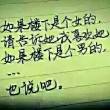 如果楼下是个女的.
请告诉她我喜欢她
...
如果楼下是个男的.
...
也说吧。